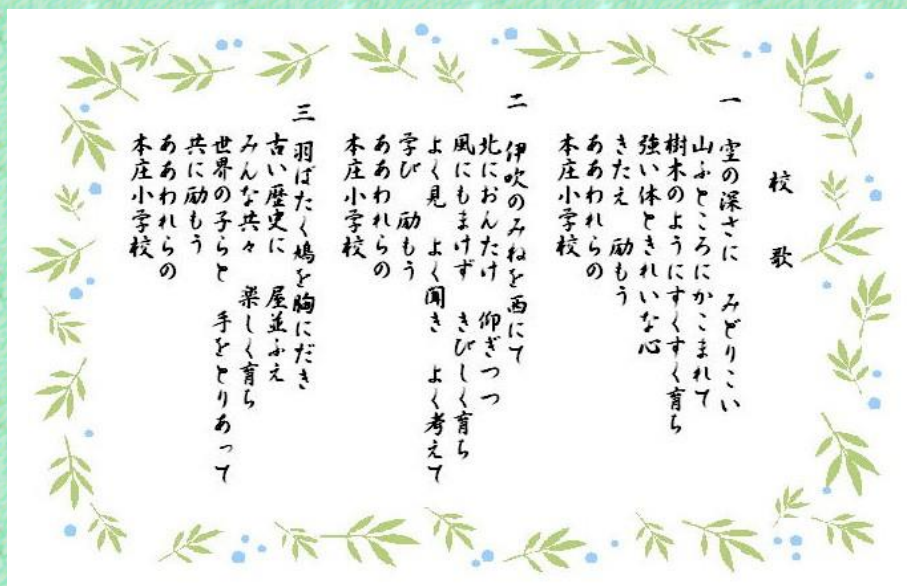 校 歌
一 空の深さに みどりこい
山ふところにかこまれて
樹木のようにすくすく育ち
強い体ときれいな心
きたえ 励もう
ああわれらの
本庄小学校
二 伊吹のみねを西にて
北におんたけ 仰ぎつつ
風にもまけず きびしく育ち
よく見 よく聞き よく考えて
学び 励もう
ああわれらの
本庄小学校
三 羽ばたく鳩を胸にだき
古い歴史に 屋並ふえ
みんな共々 楽しく育ち
世界の子らと 手をとりあって
共に励もう
ああわれらの
本庄小学校